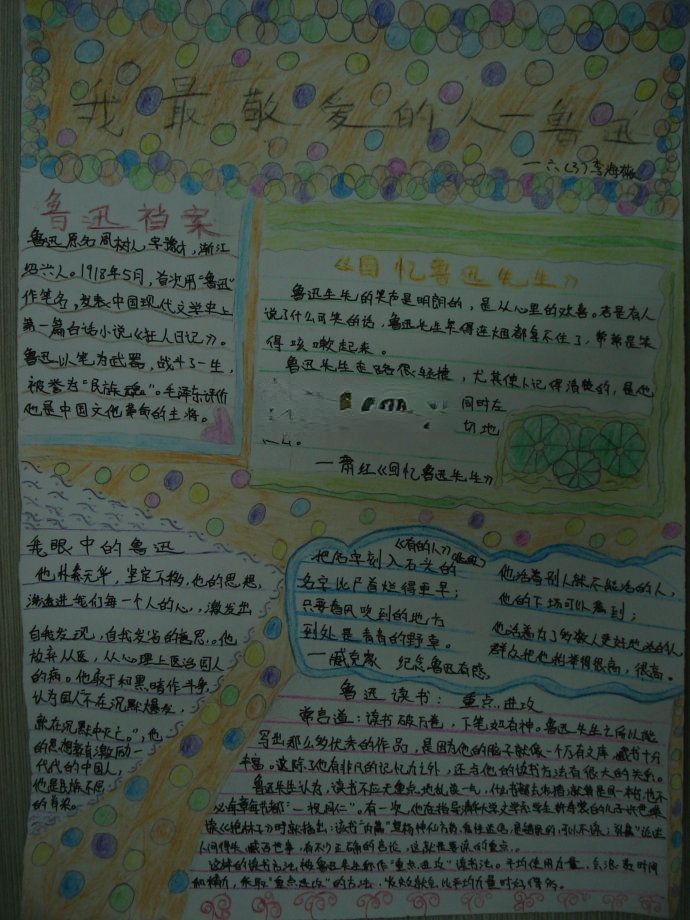 我最敬爱的人—鲁迅
—六(3)李海梅
鲁迅档案
鲁迅原名周树人,字豫才,浙江
绍兴人。1918年5月,首次用"鲁迅"
作笔名,发表中国现代文学史上
第一篇白话小说《狂人日记》。
鲁迅以笔为武器,战斗了一生,
被誉为"民族魂"。毛泽东评价
他是中国文化革命的主将。
《回忆鲁迅先生》
鲁迅先生的笑声是明朗的,是从心里的欢喜。若是有人
说了什么可笑的话,鲁迅先生笑得连烟都拿不住了,常常是笑
得咳嗽起来。
鲁迅先生走路很轻捷,尤其使人记得清楚的,是他
同时左
切地
—萧红《回忆鲁迅先生》
我眼中的鲁迅
他朴素无华,坚定不移,他的思想,
渗透进我们每一个人的人,激发出
自我发现,自我发省的意思。他
放弃从医,从心理上医治国人
的病。他敢于和黑暗作斗争,
认为国人"不在沉默爆发,
就在沉默中灭亡。",他
的思想教育激励一
代代的中国人,
他是民族不屈
的脊梁。
《有的人》(节选)
把名字刻入石头的
名字比尸首烂得更早;
只要春风吹到的地方
到处是青青的野草。
—臧克家 纪念鲁迅有感
他活着别人就不能活的人,
他的下场可以看到;
他活着为了多数人更好地活的人,
群众把他抬举得很高,很高。
鲁迅读书:重点进攻
常言道:读书破万卷,下笔如有神。鲁迅先生之所以能
写出那么多优秀的作品,是因为他的脑子就像一个万有文库,藏书十分
丰富。这除了他有非凡的记忆力之外,还与他的读书方法有很大的关系。
鲁迅先生认为,读书不应无重点地乱读一气,
必章章节节都"一视同仁"。有一次,他在指导清华大学文学系学生许寿裳的儿子许世瑛
读《抱朴子》时就指出:读书"内篇"
人间得失,臧否世事,有不少正确的言论,这就是要读的重点。
这样的读书方法,被鲁迅先生称作"重点进攻"读书法。平均使用力量,会浪费时间
和精力,采取"重点进攻"的方法,